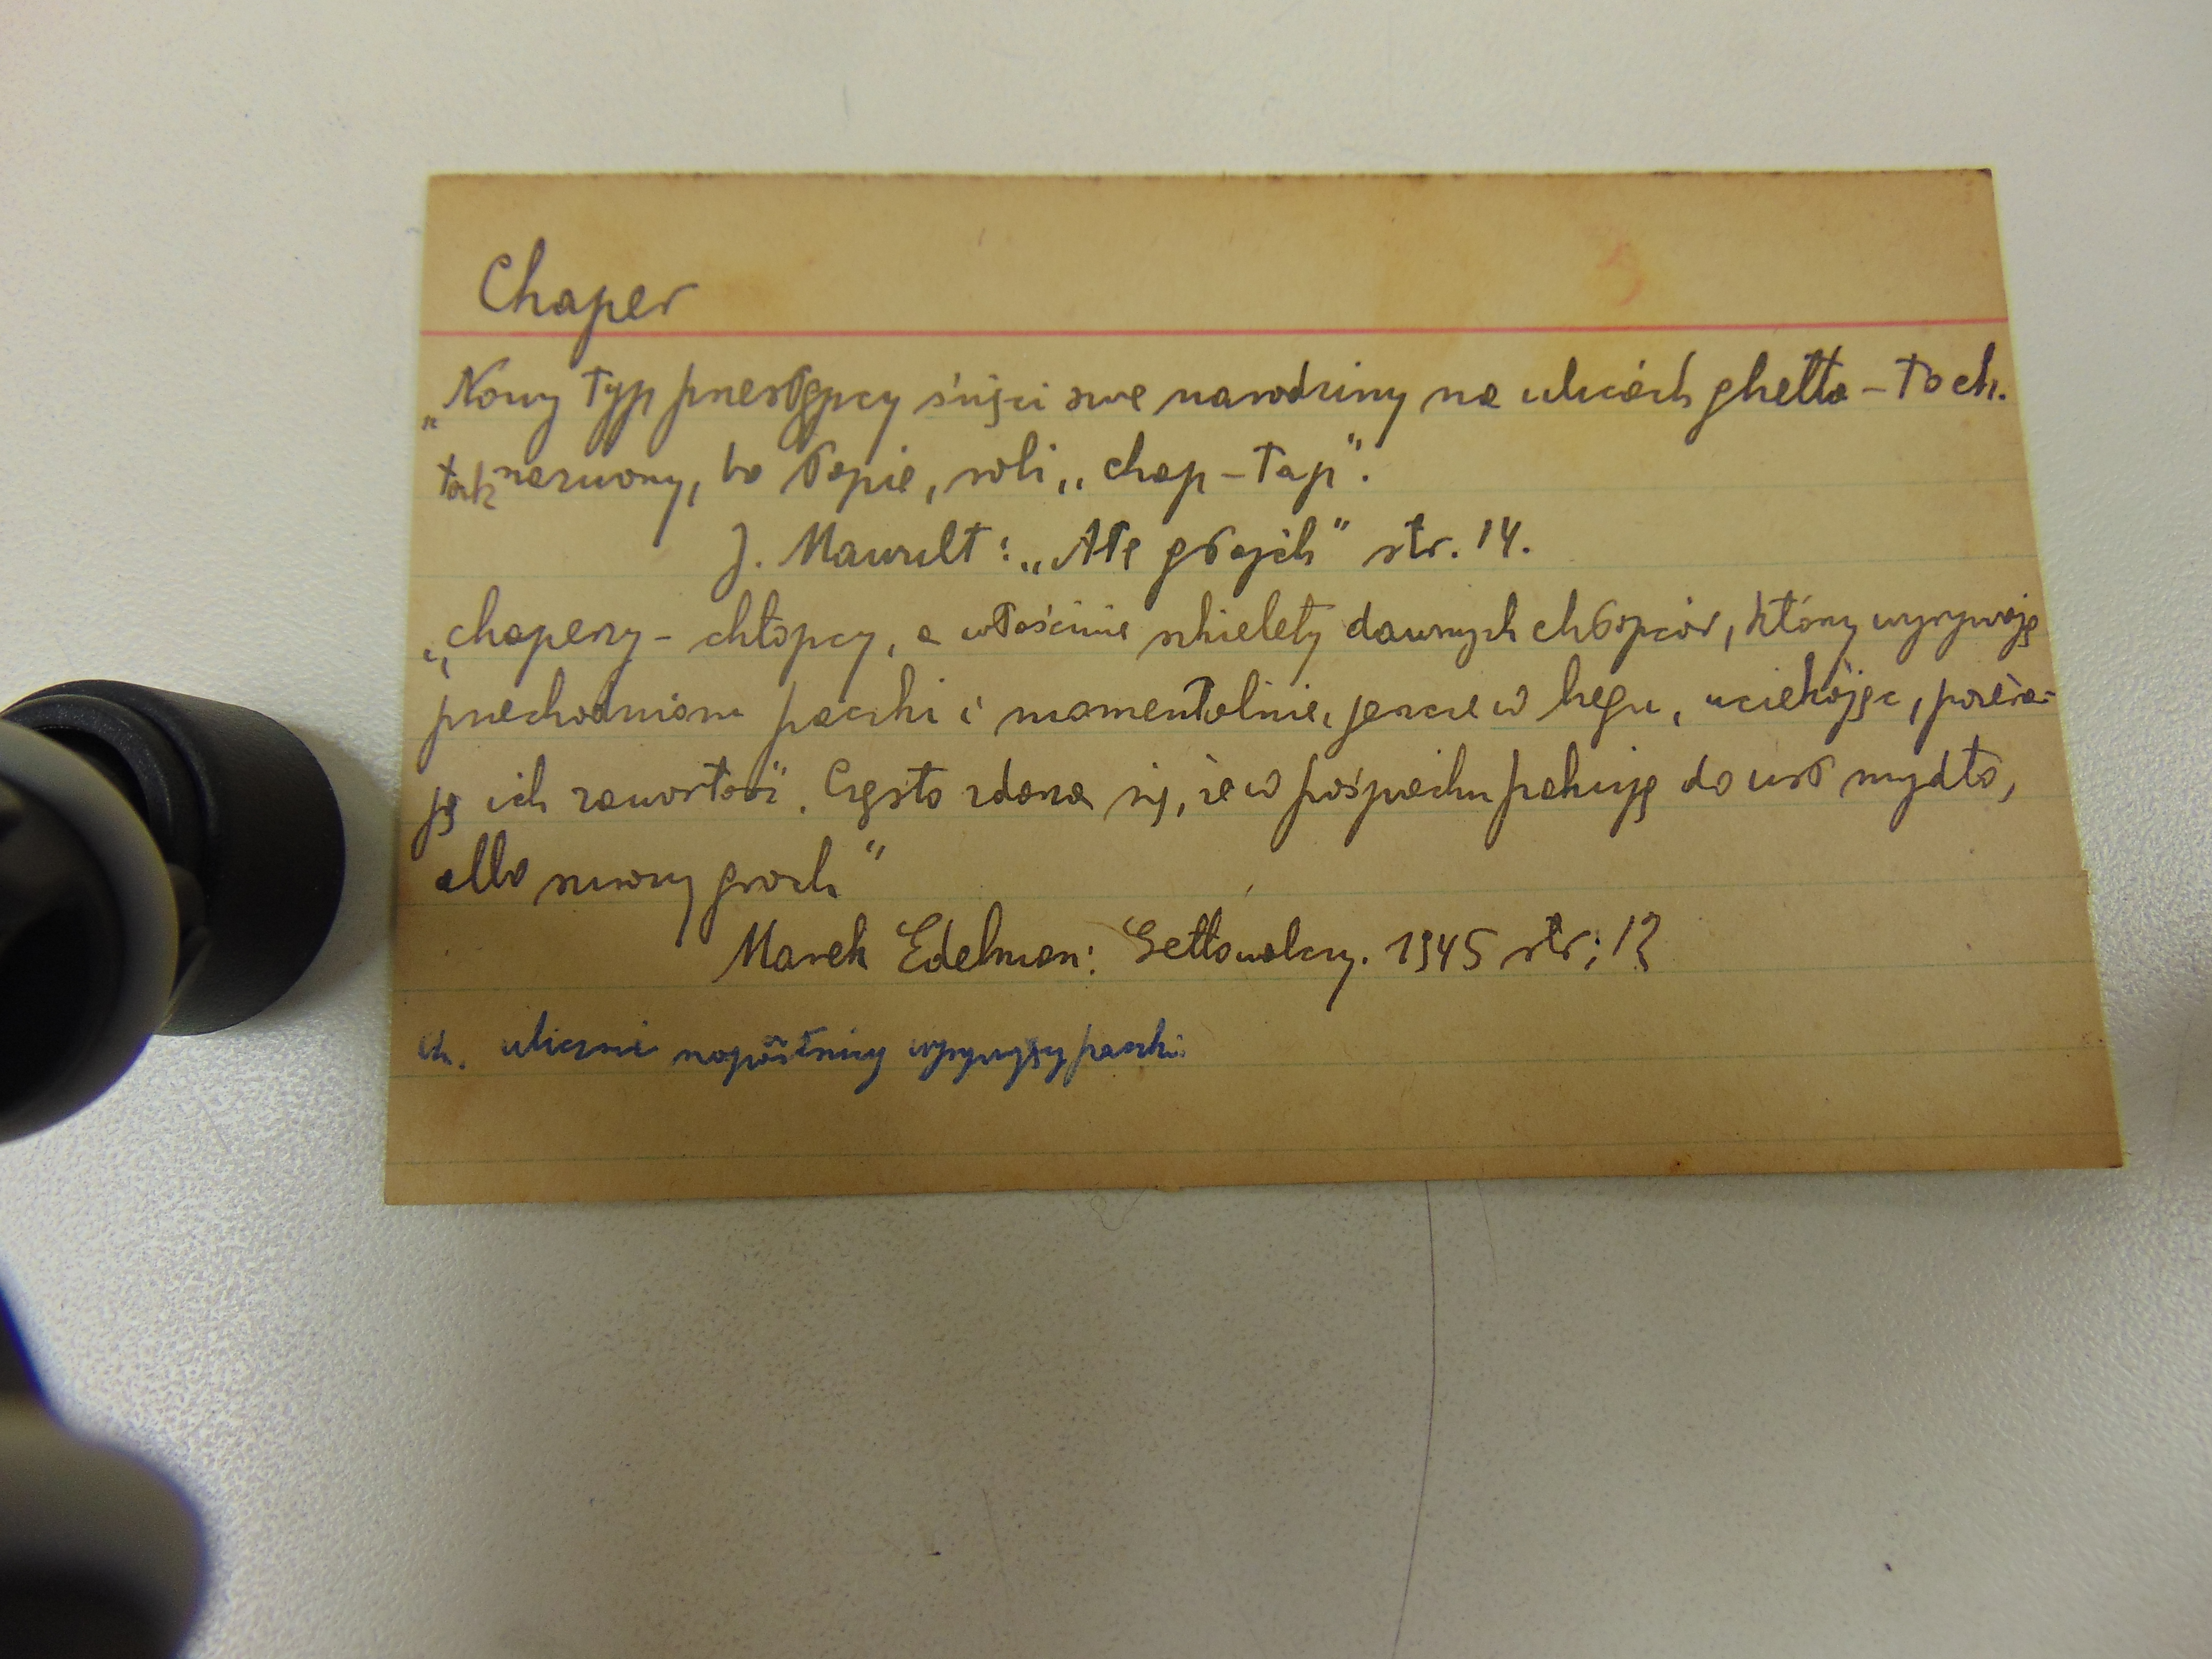 Chaper
„Nowy typ przestępcy święci swe narodziny na ulicach ghetta – to ch.
tak nazwony, bo łapie, robi „chap – łap".
J. Mawult: „Ałe głajch" str. 14.
„chaperzy – chłopcy, a właściwie szkielety dawnych chłopców, którzy wyrywają
przechodniom paczki i momentalnie, jeszcze w biegu, uciekając, pożera-
ją ich zawartość. Często zdarza się, że w pośpiechu pakują do ust mydło,
albo surowy groch"
Marek Edelman: Getto walczy. 1945 str; 12
ch. uliczni napastnicy wyrywający paczki